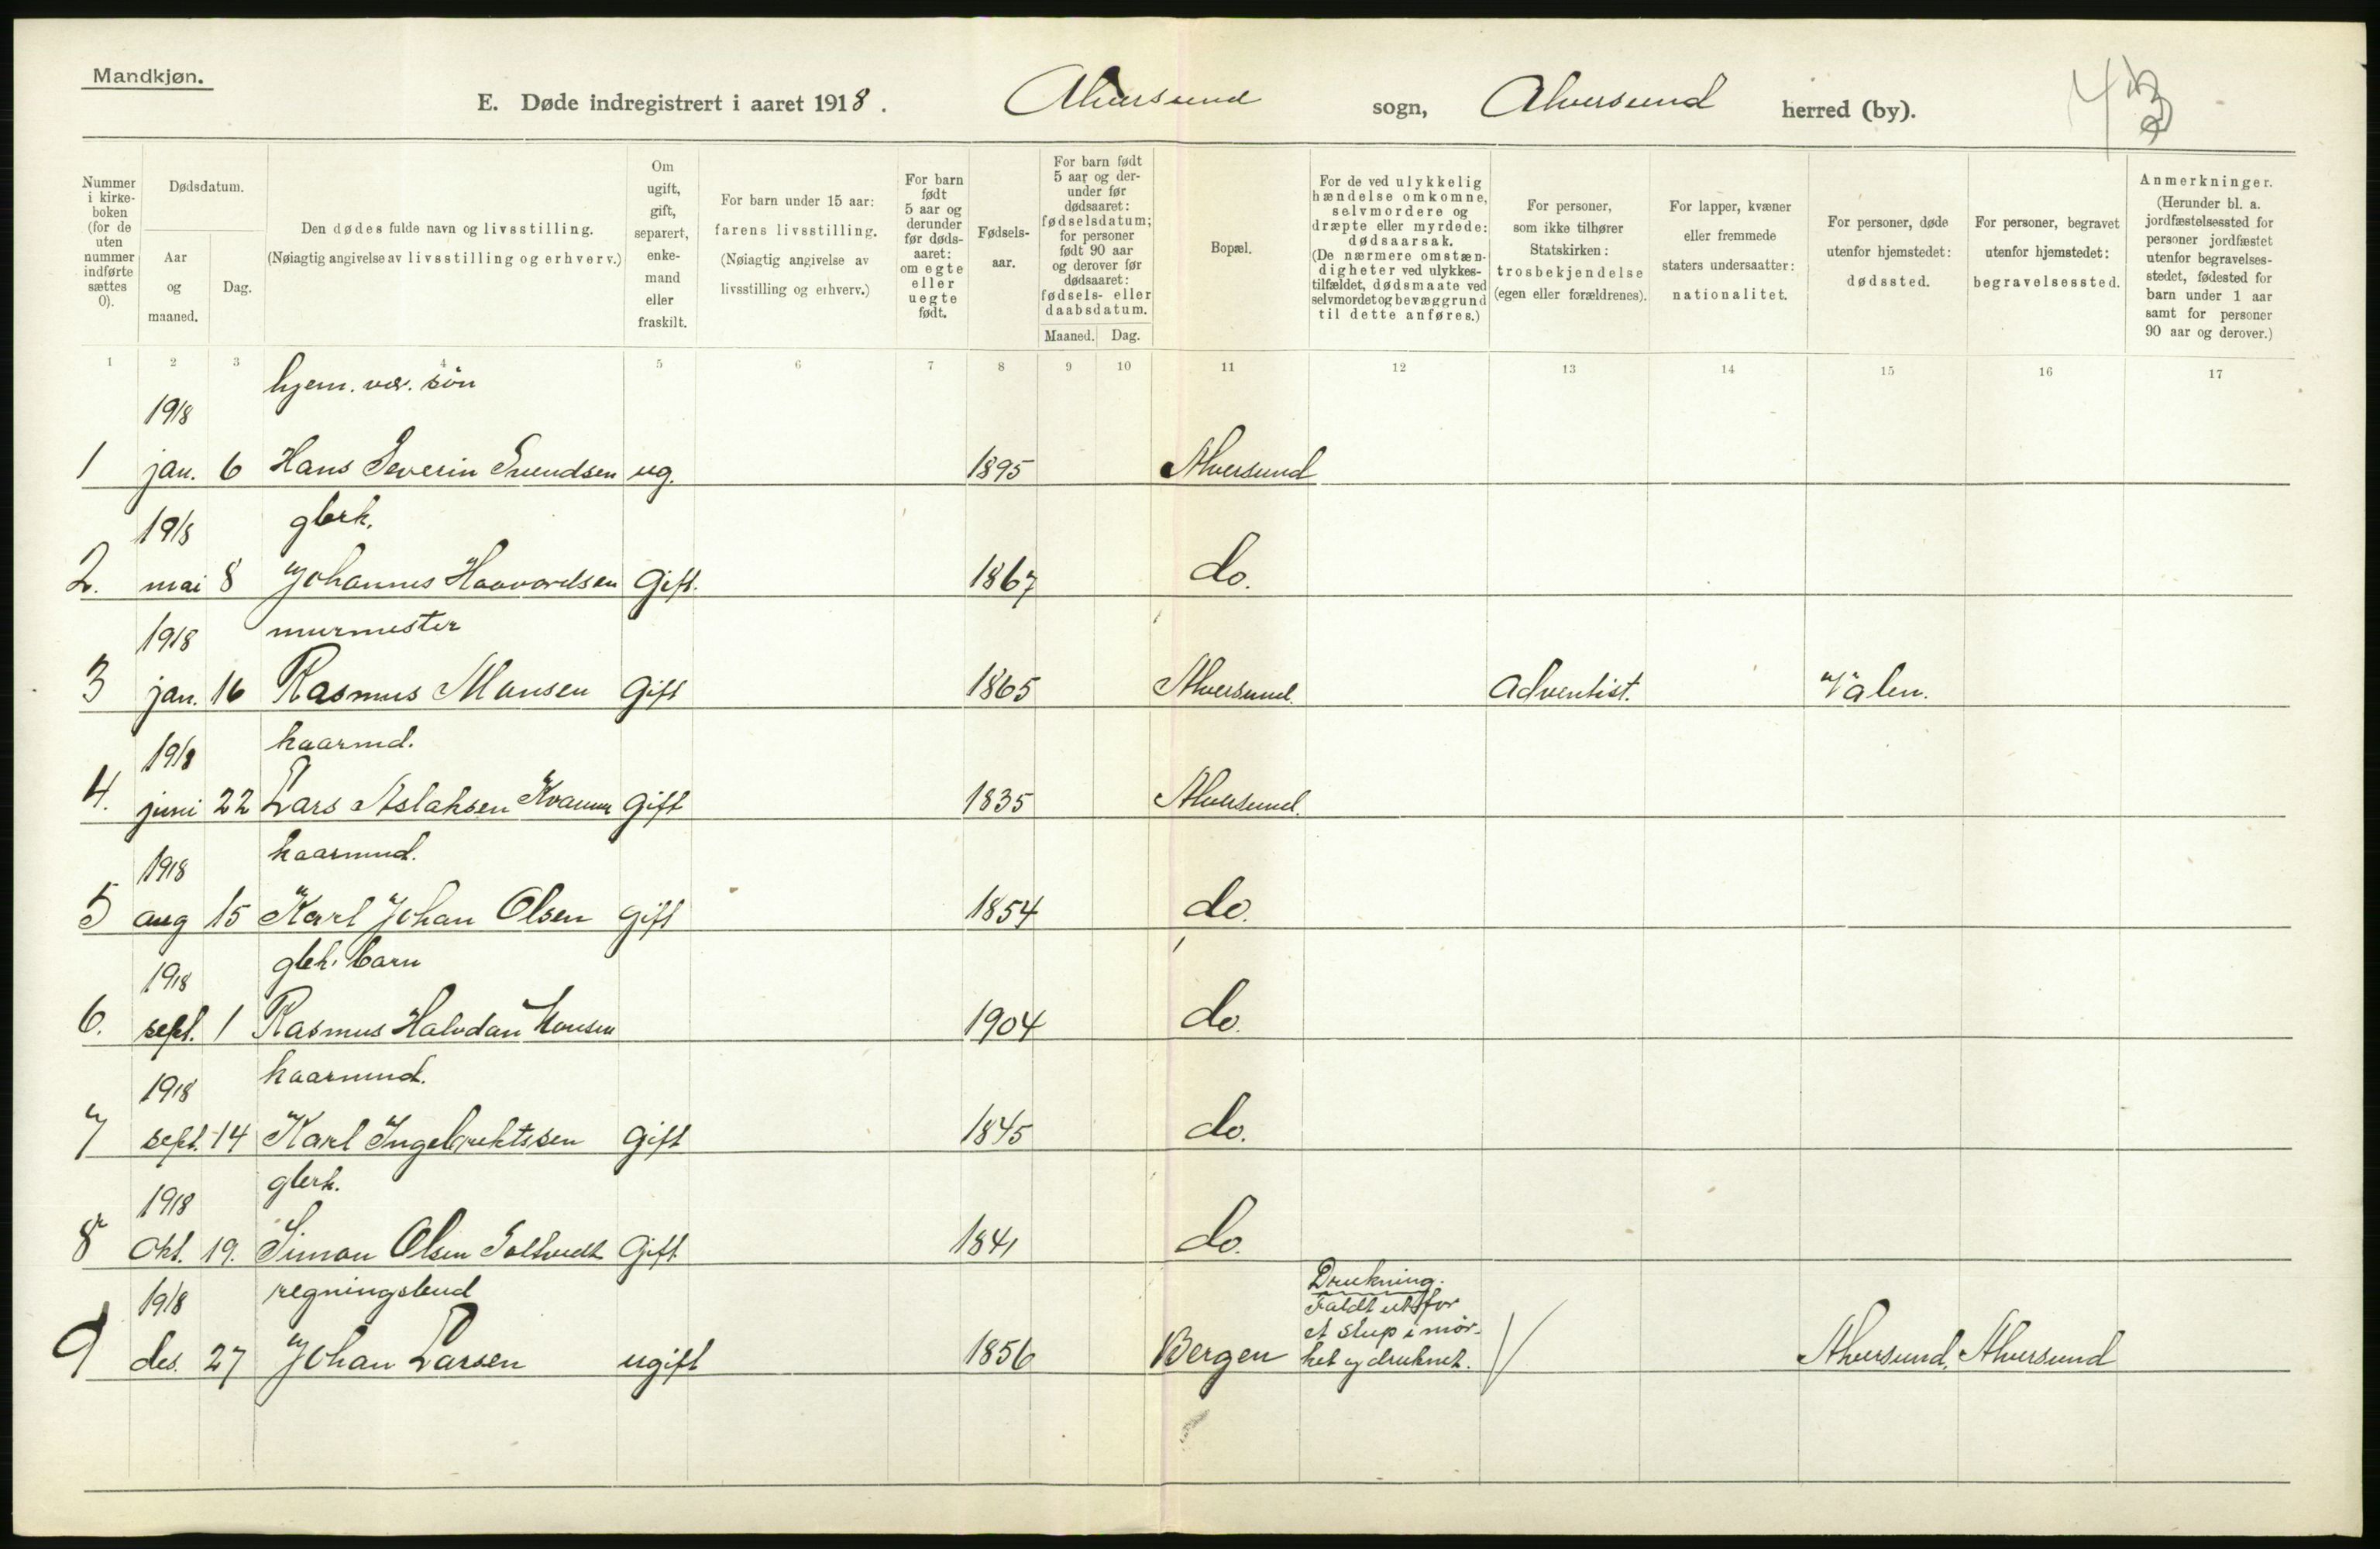 Mandkjøn.
E. Døde indregistrert i aaret 1918. Alversund sogn, Alversund herred (by).
Nummer i kirkeboken (for de uten nummer indførte sættes 0).
Dødsdatum.
Aar og maaned.
Dag.
Den dødes fulde navn og livsstilling.
(Nøiagtig angivelse av livsstilling og erhverv.)
Om ugift, gift, separert, enkemand eller fraskilt.
For barn under 15 aar: farens livsstilling.
(Nøiagtig angivelse av livsstilling og erhverv.)
For barn født 5 aar og derunder før dødsaaret: om egte eller uegte født.
Fødselsaar.
For barn født 5 aar og derunder før dødsaaret: fødselsdatum; for personer født 90 aar og derover før dødsaaret: fødsels- eller daabsdatum.
Maaned. Dag.
Bopæl.
For de ved ulykkelig hændelse omkomne, selvmordere og dræpte eller myrdede: dødsaarsak.
(De nærmere omstændigheter ved ulykkestilfældet, dødsmaate ved selvmordet og bevæggrund til dette anføres.)
For personer, som ikke tilhører Statskirken: trosbekjendelse (egen eller forældrenes).
For lapper, kvæner eller fremmede staters undersaatter: nationalitet.
For personer, døde utenfor hjemstedet: dødssted.
For personer, begravet utenfor hjemstedet: begravelsessted.
Anmerkninger.
(Herunder bl. a. jordfæstelsessted for personer jordfæstet utenfor begravelsesstedet, fødested for barn under 1 aar samt for personer 90 aar og derover.)
1 2 3 4 5 6 7 8 9 10 11 12 13 14 15 16 17
1918 hjem. vær. søn
1 jan. 6 Hans Severin Svendsen ug. 1895 Alversund
1918 gbrk.
2. mai 8 Johannes Haavardsen Gift. 1867 do.
1918 murmester
3 jan. 16 Rasmus Monsen Gift 1865 Alversund. Adventist. Valen.
1918 kaarmd.
4. juni 22 Lars Aslaksen Kvamme Gift 1835 Alversund.
1918 kaarmnd.
5 aug 15 Karl Johan Olsen Gift 1854 do.
1918 gbk. barn
6. sept. 1 Rasmus Halvdan Monsen 1904 do.
1918 kaarmnd.
7 sept. 14 Karl Ingebrektssen Gift 1845 do.
1918 gbrk.
8 Okt. 19. Simon Olsen Gift 1841 do.
1918 regningsbud
9 des. 27 Johan Larsen ugift 1856 Bergen Drukning. Faldt utfor et stup i mør-
ket og druknet. Alversund, Alversund